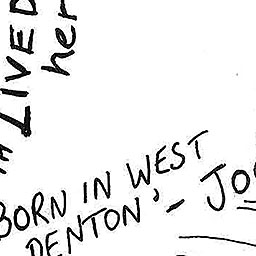 LIVED
her
BORN IN WEST
DENTON' - Jo